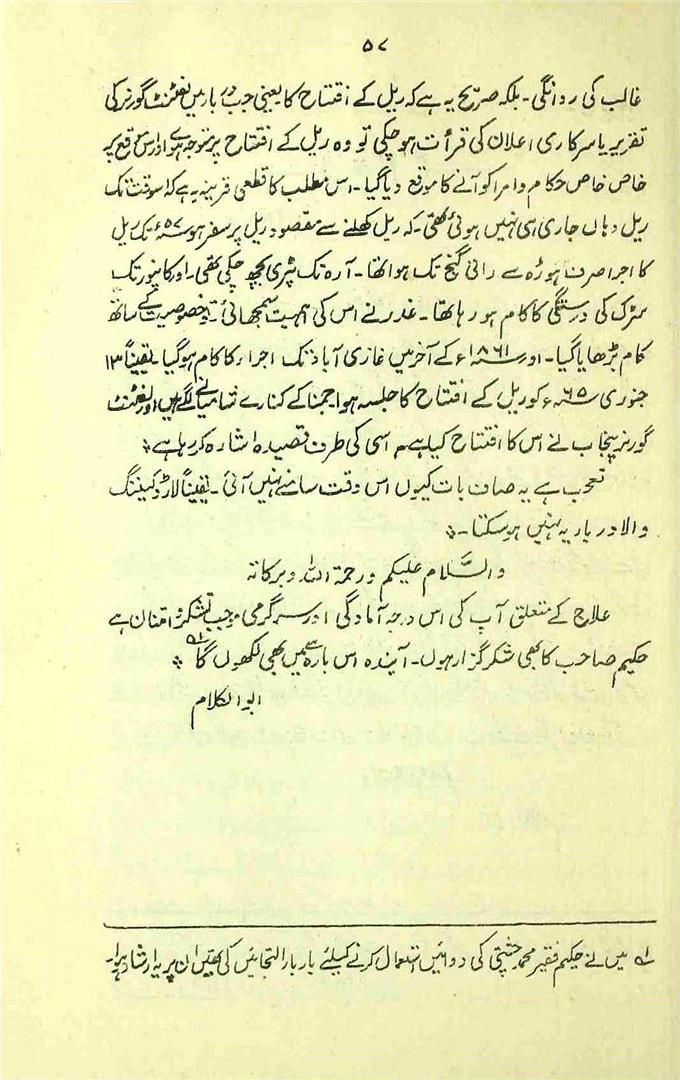 ۵۷
غالب کی روانگی۔ بلکہ صریح یہ ہے کہ ریل کے افتتاح کا یعنی جب دربار میں لفٹننٹ گورنر کی
تقریر یا سرکاری اعلان کی قرأت ہو چکی تو وہ ریل کے افتتاح پر متوجہ ہوا اور اس موقع پر
خاص خاص حکام و امرا کو آنے کا موقع دیا گیا۔ اس مطلب کا قطعی قرینہ یہ ہے کہ اسوقت تک
ریل وہاں جاری ہی نہیں ہوئی تھی۔ کہ ریل کھلنے سے مقصود ریل پر سفر ہو ۵۷ء تک ریل
کا اجرا صرف ہوڑہ سے رانی گنج تک ہوا تھا۔ آرہ تک پٹری بچھ چکی تھی۔ اور کانپور تک
سڑک کی درستگی کا کام ہو رہا تھا۔ غدر نے اس کی اہمیت سمجھائی۔ خصوصیت کے ساتھ
کام بڑھایا گیا۔ اور ۱۸۶۱ء کے آخر میں غازی آباد تک اجراء کا کام ہو گیا۔ یقیناً ۱۳
جنوری ۶۵ء کو ریل کے افتتاح کا جلسہ ہوا جمنا کے کنارے شامیانے لگے ہیں اور لفٹننٹ
گورنر پنجاب نے اس کا افتتاح کیا ہے اسی کی طرف قصیدہ اشارہ کر رہا ہے
تعجب ہے یہ صاف بات کیوں اس وقت سامنے نہیں آئی۔ یقیناً لارڈ کیننگ
والا دربار یہ نہیں ہو سکتا۔
والسَّلام علیکم ورحمۃ اللہ وبرکاتہ
علاج کے متعلق آپ کی اس درجہ آمادگی اور سرگرمی موجب تشکر و امتنان ہے
حکیم صاحب کا بھی شکر گزار ہوں۔ آیندہ اس بارہ میں بھی لکھوں گا
ابوالکلام
میں نے حکیم فقیر محمد چشتی کی دوائیں استعمال کرنے کیلئے بار بار التجائیں کی تھیں ان پر یہ ارشاد ہوا۔